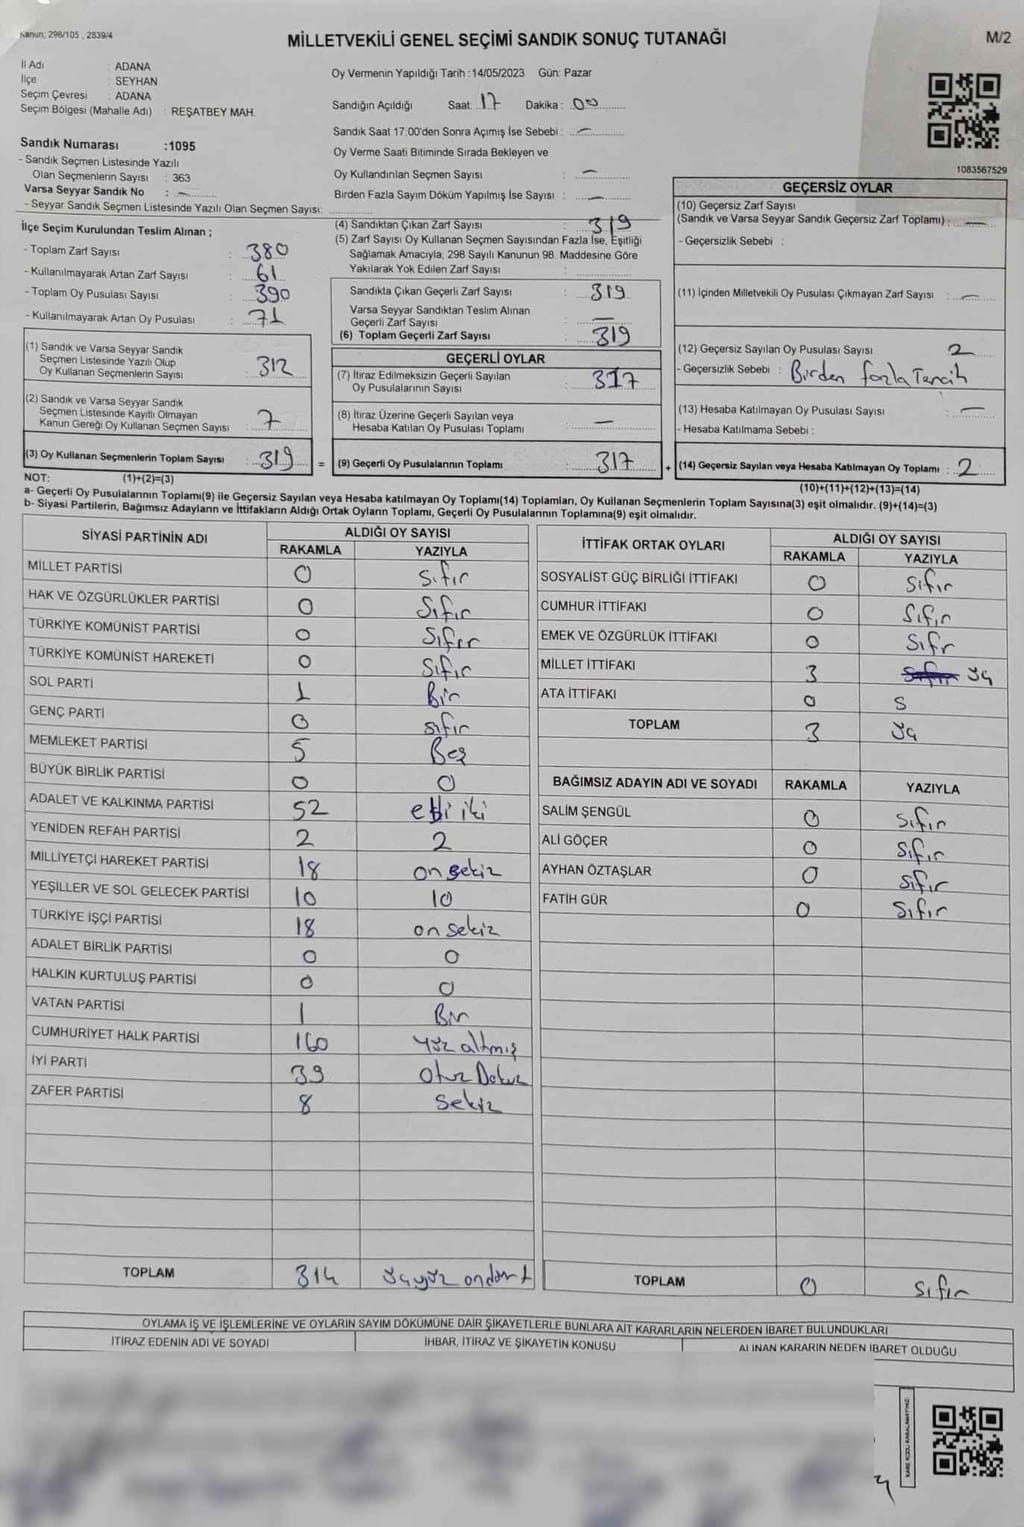 Kanun; 298/105 , 2839/4
MİLLETVEKİLİ GENEL SEÇİMİ SANDIK SONUÇ TUTANAĞI
M/2
İl Adı : ADANA
İlçe : SEYHAN
Seçim Çevresi : ADANA
Seçim Bölgesi (Mahalle Adı) : REŞATBEY MAH.
Sandık Numarası :1095
- Sandık Seçmen Listesinde Yazılı
Olan Seçmenlerin Sayısı : 363
Varsa Seyyar Sandık No : -
- Seyyar Sandık Seçmen Listesinde Yazılı Olan Seçmen Sayısı:
Oy Vermenin Yapıldığı Tarih :14/05/2023 Gün: Pazar
Sandığın Açıldığı Saat: 17 Dakika : 00
Sandık Saat 17:00'den Sonra Açılmış İse Sebebi : -
Oy Verme Saati Bitiminde Sırada Bekleyen ve
Oy Kullandırılan Seçmen Sayısı : -
Birden Fazla Sayım Döküm Yapılmış İse Sayısı : -
1083567529
İlçe Seçim Kurulundan Teslim Alınan ;
- Toplam Zarf Sayısı : 380
- Kullanılmayarak Artan Zarf Sayısı : 61
- Toplam Oy Pusulası Sayısı : 390
- Kullanılmayarak Artan Oy Pusulası : 71
(1) Sandık ve Varsa Seyyar Sandık
Seçmen Listesinde Yazılı Olup
Oy Kullanan Seçmenlerin Sayısı : 312
(2) Sandık ve Varsa Seyyar Sandık
Seçmen Listesinde Kayıtlı Olmayan
Kanun Gereği Oy Kullanan Seçmen Sayısı : 7
(3) Oy Kullanan Seçmenlerin Toplam Sayısı : 319
(4) Sandıktan Çıkan Zarf Sayısı : 319
(5) Zarf Sayısı Oy Kullanan Seçmen Sayısından Fazla İse, Eşitliği
Sağlamak Amacıyla, 298 Sayılı Kanunun 98. Maddesine Göre
Yakılarak Yok Edilen Zarf Sayısı :
Sandıkta Çıkan Geçerli Zarf Sayısı : 319
Varsa Seyyar Sandıktan Teslim Alınan
Geçerli Zarf Sayısı : -
(6) Toplam Geçerli Zarf Sayısı : 319
GEÇERLİ OYLAR
(7) İtiraz Edilmeksizin Geçerli Sayılan
Oy Pusulalarının Sayısı : 317
(8) İtiraz Üzerine Geçerli Sayılan veya
Hesaba Katılan Oy Pusulası Toplamı : -
= (9) Geçerli Oy Pusulalarının Toplamı : 317
GEÇERSİZ OYLAR
(10) Geçersiz Zarf Sayısı
(Sandık ve Varsa Seyyar Sandık Geçersiz Zarf Toplamı) : -
- Geçersizlik Sebebi :
(11) İçinden Milletvekili Oy Pusulası Çıkmayan Zarf Sayısı : -
(12) Geçersiz Sayılan Oy Pusulası Sayısı : 2
- Geçersizlik Sebebi : Birden fazla Tercih
(13) Hesaba Katılmayan Oy Pusulası Sayısı : -
- Hesaba Katılmama Sebebi :
+ (14) Geçersiz Sayılan veya Hesaba Katılmayan Oy Toplamı : 2
NOT: (1)+(2)=(3)
(10)+(11)+(12)+(13)=(14)
a- Geçerli Oy Pusulalarının Toplamı(9) ile Geçersiz Sayılan veya Hesaba katılmayan Oy Toplamı(14) Toplamları, Oy Kullanan Seçmenlerin Toplam Sayısına(3) eşit olmalıdır. (9)+(14)=(3)
b- Siyasi Partilerin, Bağımsız Adayların ve İttifakların Aldığı Oyların Toplamı, Geçerli Oy Pusulalarının Toplamına(9) eşit olmalıdır.
SİYASİ PARTİNİN ADI ALDIĞI OY SAYISI
RAKAMLA YAZIYLA
MİLLET PARTİSİ 0 Sıfır
HAK VE ÖZGÜRLÜKLER PARTİSİ 0 Sıfır
TÜRKİYE KOMÜNİST PARTİSİ 0 Sıfır
TÜRKİYE KOMÜNİST HAREKETİ 0 Sıfır
SOL PARTİ 1 Bir
GENÇ PARTİ 0 sıfır
MEMLEKET PARTİSİ 5 Beş
BÜYÜK BİRLİK PARTİSİ 0 0
ADALET VE KALKINMA PARTİSİ 52 elli iki
YENİDEN REFAH PARTİSİ 2 2
MİLLİYETÇİ HAREKET PARTİSİ 18 on sekiz
YEŞİLLER VE SOL GELECEK PARTİSİ 10 10
TÜRKİYE İŞÇİ PARTİSİ 18 on sekiz
ADALET BİRLİK PARTİSİ 0 0
HALKIN KURTULUŞ PARTİSİ 0 0
VATAN PARTİSİ 1 Bir
CUMHURİYET HALK PARTİSİ 160 yüz altmış
İYİ PARTİ 39 otuz Dokuz
ZAFER PARTİSİ 8 Sekiz
TOPLAM 314 üçyüz ondört
İTTİFAK ORTAK OYLARI ALDIĞI OY SAYISI
RAKAMLA YAZIYLA
SOSYALİST GÜÇ BİRLİĞİ İTTİFAKI 0 Sıfır
CUMHUR İTTİFAKI 0 Sıfır
EMEK VE ÖZGÜRLÜK İTTİFAKI 0 Sıfr
MİLLET İTTİFAKI 3 Sıfır üç
ATA İTTİFAKI 0 S
TOPLAM 3 üç
BAĞIMSIZ ADAYIN ADI VE SOYADI RAKAMLA YAZIYLA
SALİM ŞENGÜL 0 Sıfır
ALİ GÖÇER 0 Sıfır
AYHAN ÖZTAŞLAR 0 Sıfır
FATİH GÜR 0 Sıfır
TOPLAM 0 Sıfır
OYLAMA İŞ VE İŞLEMLERİNE VE OYLARIN SAYIM DÖKÜMÜNE DAİR ŞİKAYETLERLE BUNLARA AİT KARARLARIN NELERDEN İBARET BULUNDUKLARI
İTİRAZ EDENİN ADI VE SOYADI İHBAR, İTİRAZ VE ŞİKAYETİN KONUSU ALINAN KARARIN NEDEN İBARET OLDUĞU
KARE KODU KARALAMAYINIZ